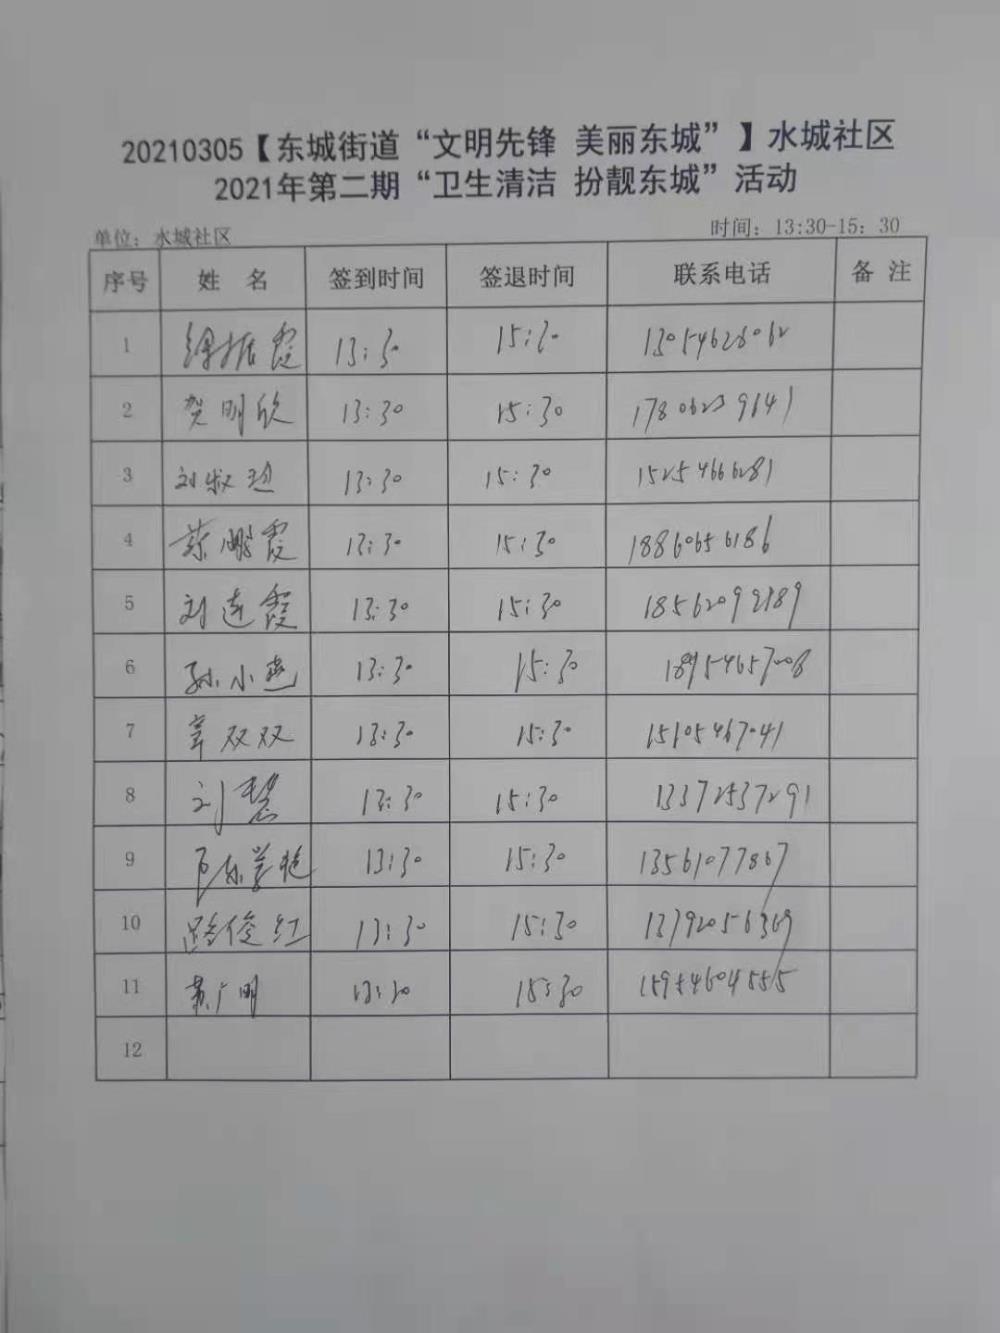 20210305【东城街道“文明先锋 美丽东城”】水城社区
2021年第二期“卫生清洁 扮靓东城”活动
单位：水城社区 时间：13:30-15：30
序号 姓 名 签到时间 签退时间 联系电话 备 注
1 徐振霞 13:30 15:30
2 贺明欣 13:30 15:30 17806239641
3 刘淑 13:30 15:30 15254666281
4 蔡鹏霞 13:30 15:30 18860656186
5 刘连霞 13:30 15:30 18562092189
6 孙小燕 13:30 15:30 18954657008
7 辛双双 13:30 15:30 15105467041
8 刘慧 13:30 15:30 13372537291
9 13:30 15:30 13561077867
10 路俊红 13:30 15:30 13792056369
11 黄广明 13:30 15:30 15954604555
12